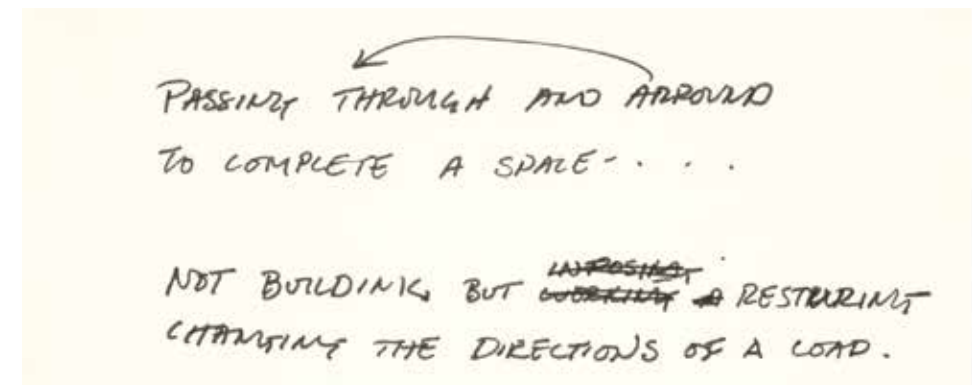 PASSING THROUGH AND ARROUND
TO COMPLETE A SPACE - . . .
NOT BUILDING, BUT RESTURING
CHANGING THE DIRECTIONS OF A LOAD.